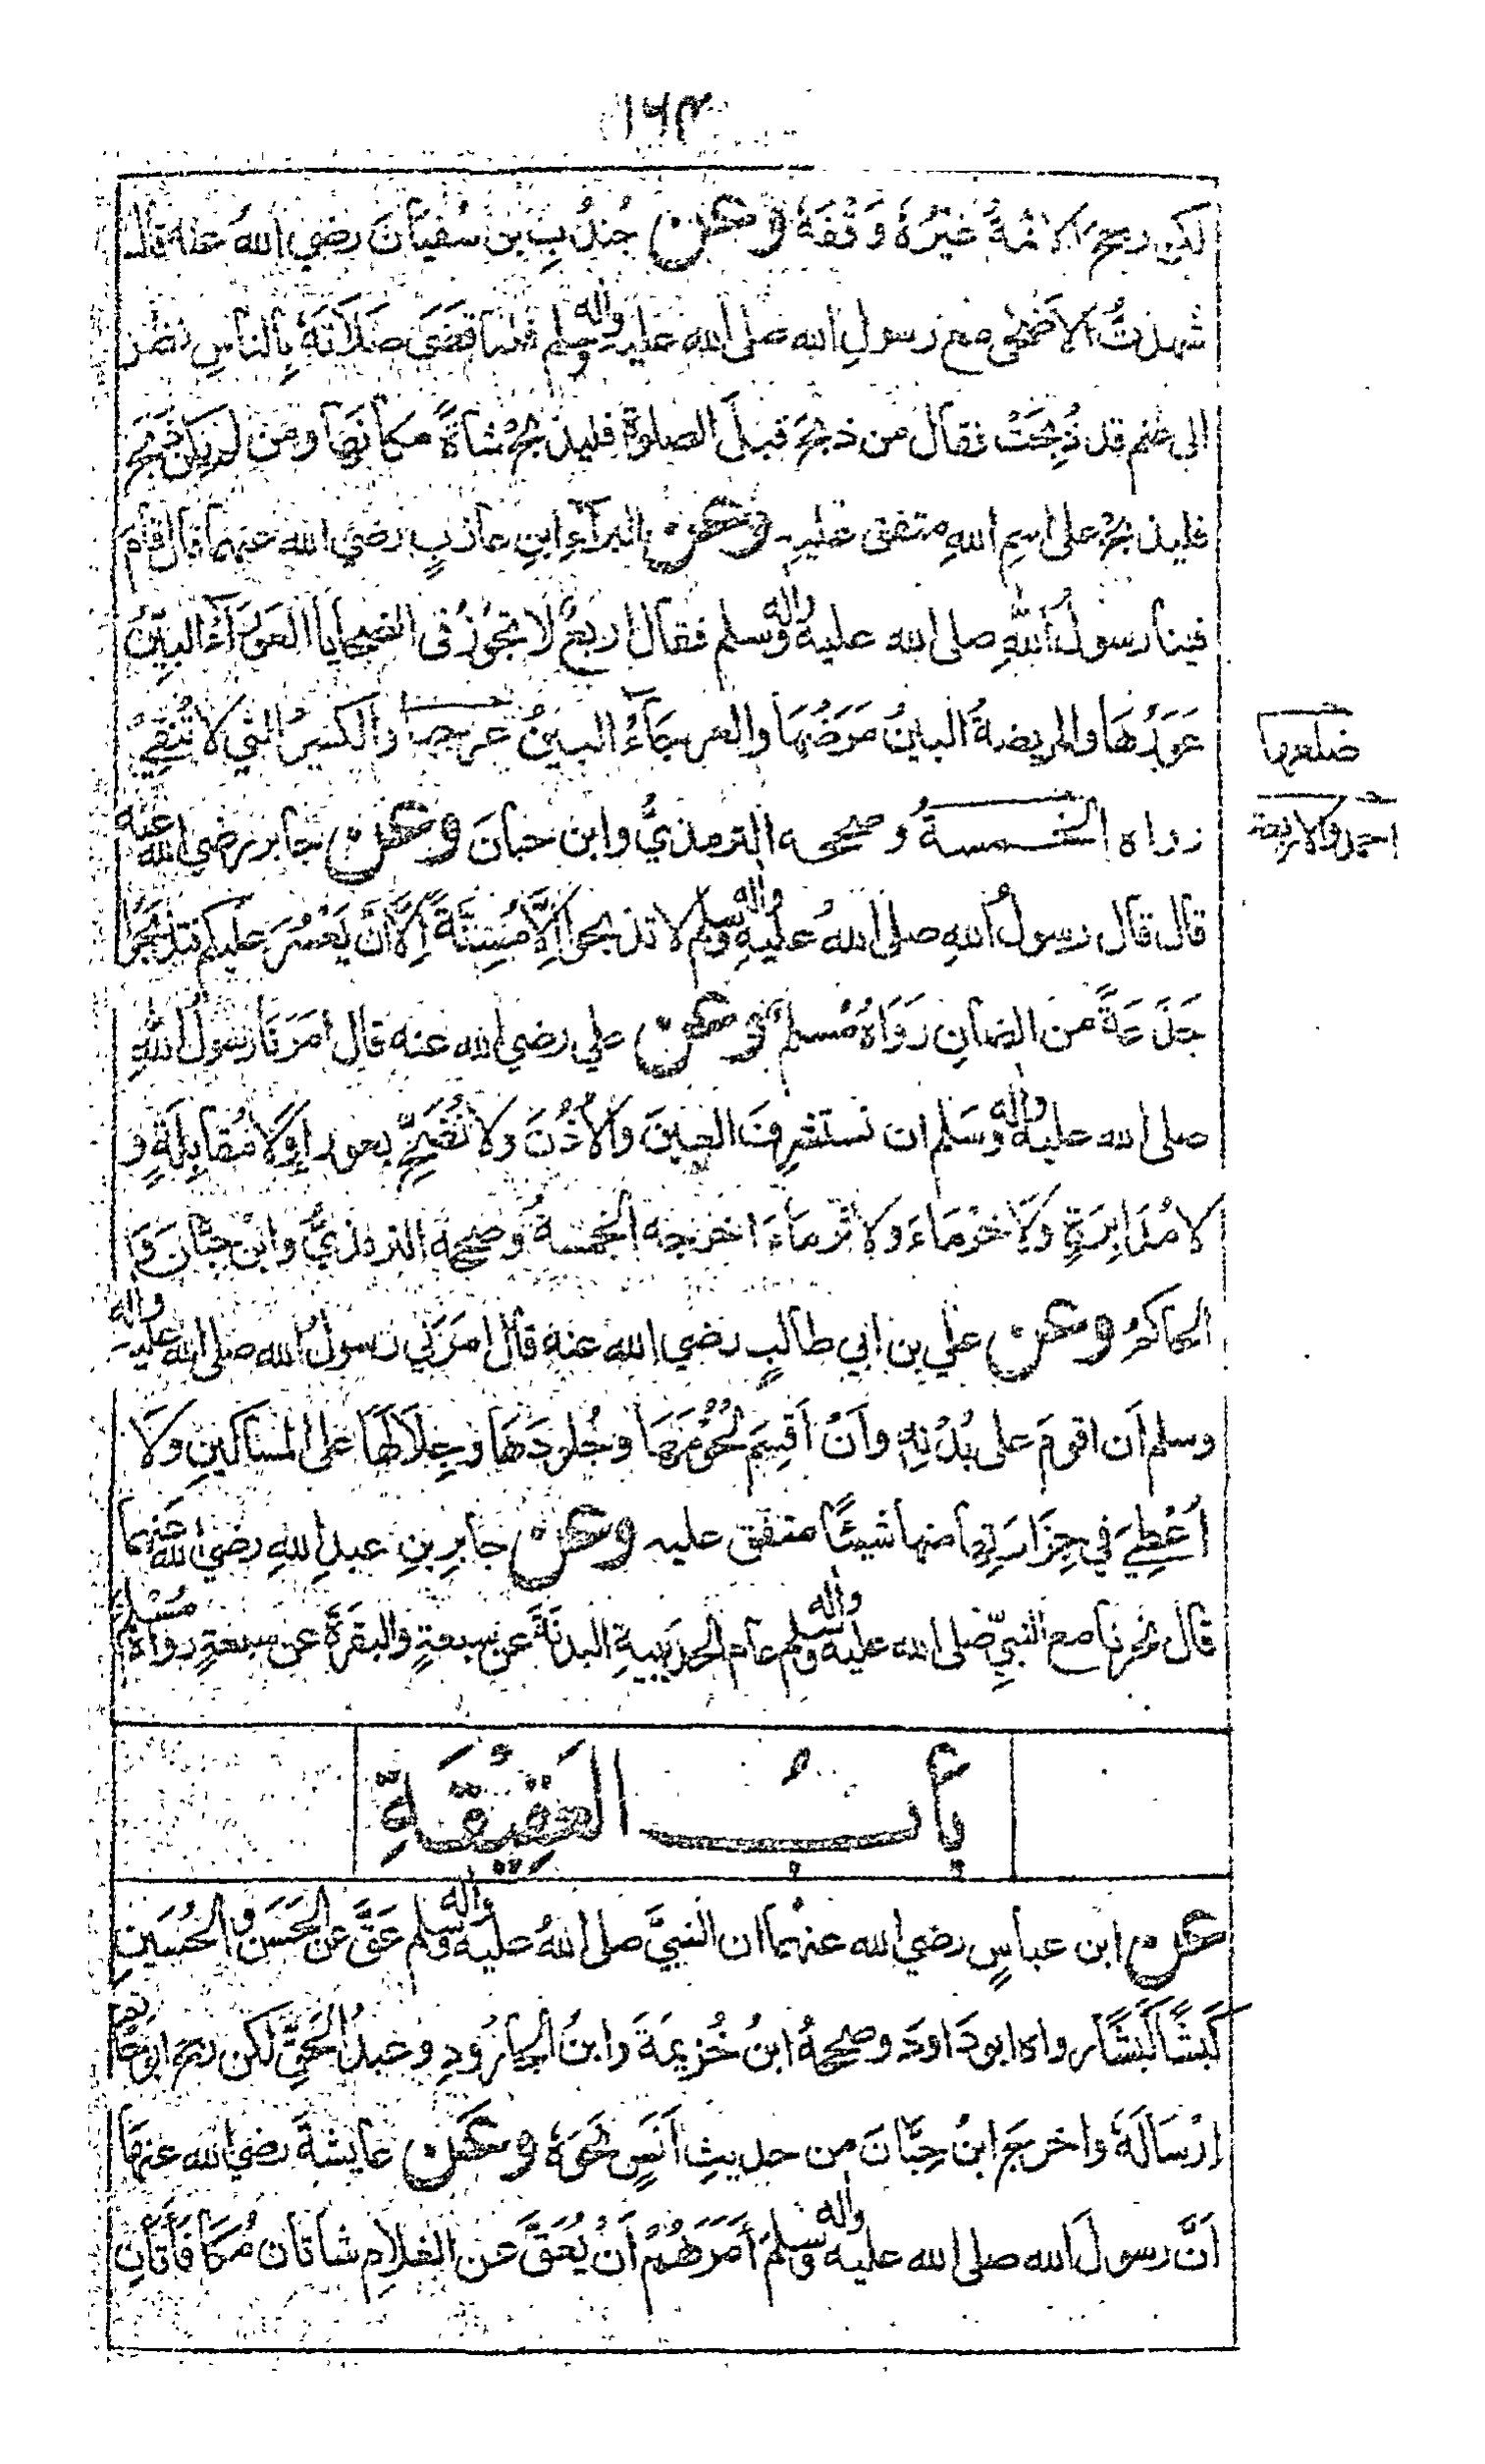 ١٦٣
لكن رجح الائمةُ غيرُهٗ وَقْفَهٗ وعن جُندُبِ بن سُفيانَ رضي اللهُ عنه قال
شهدتُ الاضحٰى مع رسولِ الله صلى الله عليه واٰله وسلم فلما قضَى صَلَاتَهٗ بِالناسِ نظر
الى غنم قد ذُبِحَتْ فقال من ذبحَ قبلَ الصلوةِ فليذبحْ شاةً مكانَها ومَن لم يكن ذَبَحَ
فليذبحْ على اسمِ اللهِ متفق عليه وعن البرآءِ ابنِ عازبٍ رضي الله عنهما قال قام
فينا رسولُ اللهِ صلى الله عليه واٰله وسلم فقال اربعٌ لا تجوزُ فى الضحايا العَورَآءُ البيّنُ
عَوَرُهَا والمريضةُ البينُ مَرَضُهَا والعرجآءُ البينُ عرجها والكسيرُ التي لا تُنْقِيْ
رواه الخمسةُ وصححه الترمذيُّ وابن حبانَ وعن جابر رضي الله عنه
قال قال رسولُ اللهِ صلى اللهُ عليهِ واٰله وسلم لا تذبحوا اِلَّا مُسِنَّةً اِلَّا اَنْ يَعْسُرَ عليكم فتذبحُوا
جَذَعَةً من الضانِ رَوَاهُ مُسلمٌ وعن علي رضي الله عنه قال امَرَنَا رسولُ اللهِ
صلى الله عليه واٰله وسَلم ان نستشرِفَ العينَ وَالاُذُنَ ولا نُضَحِّيَ بعوراءَ ولا مُقابِلَةٍ و
لا مُدَابِرَةٍ ولَا خرْمَاءَ ولا ثرمَاءَ اخرجه الخمسةُ وصححهُ الترمذيُّ وابنُ حبَّانَ وَ
الحاكمُ وعن علي بن ابي طالبٍ رضي الله عنه قال امرَني رسولُ الله صلى الله عليه واٰله
وسلم اَن اقومَ على بُدْنِهٖ وَاَنْ اَقسِمَ لحُوْمَهَا وجُلودَهَا وجِلَالَهَا على المسَاكينِ ولَا
اُعْطِيَ في جِزَارَتِها منها شيئًا متفق عليه وعن جابرِ بنِ عبدِ اللهِ رضي الله عنهما
قال نحرنا مع النبيِّ صلى الله عليه واٰله وسلم عام الحديبيةِ البدنَةَ عن سبعةٍ والبقَرَةَ عن سبعةٍ رواهُ مُسْلِمٌ
بابُ العَقِيْقَةِ
عن ابن عباسٍ رضي الله عنهُما ان النبيَّ صلى اللهُ عليه واٰله وسلم عَقَّ عن الحَسَن والحُسَينِ
كَبْشًا كَبْشًا رواه ابو دَاودَ وصححهُ ابنُ خُزيمَةَ وابنُ الجارُودِ وعبدُ الحَقِّ لكن رجح ابو حاتمٍ
اِرْسَالَهٗ واخرجَ ابنُ حِبَّانَ من حديثِ اَنَسٍ نحوَهٗ وعن عايشةَ رضي الله عنهَا
اَنَّ رسولَ الله صلى الله عليه واٰله وسلمَ اَمَرَهُمْ اَنْ يُعَقَّ عن الغلامِ شاتان مُكافَأَتَانِ
ضلعها
احمد والاربعة